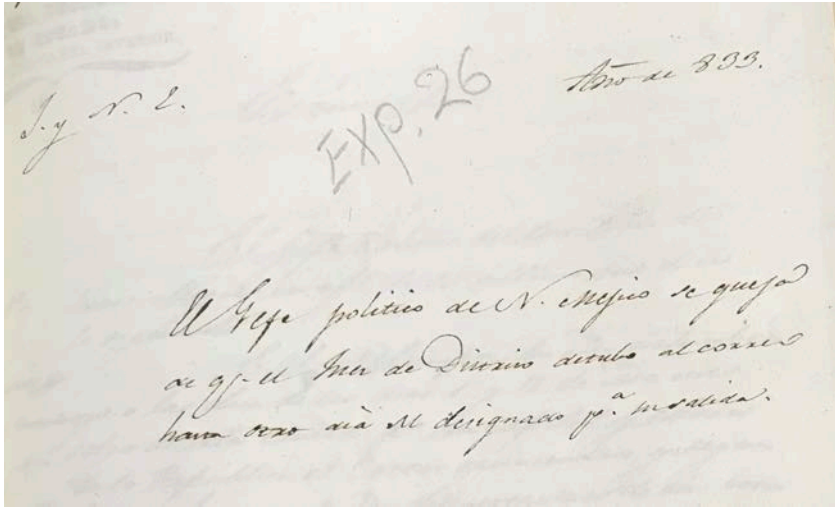 J. y N. 2.
Exp. 26
Año de 833.
El Gefe politico de N. Mejico se queja
de qe. el Juez de Distrito detubo al correo
hasta otro dia del designado pa. su salida.